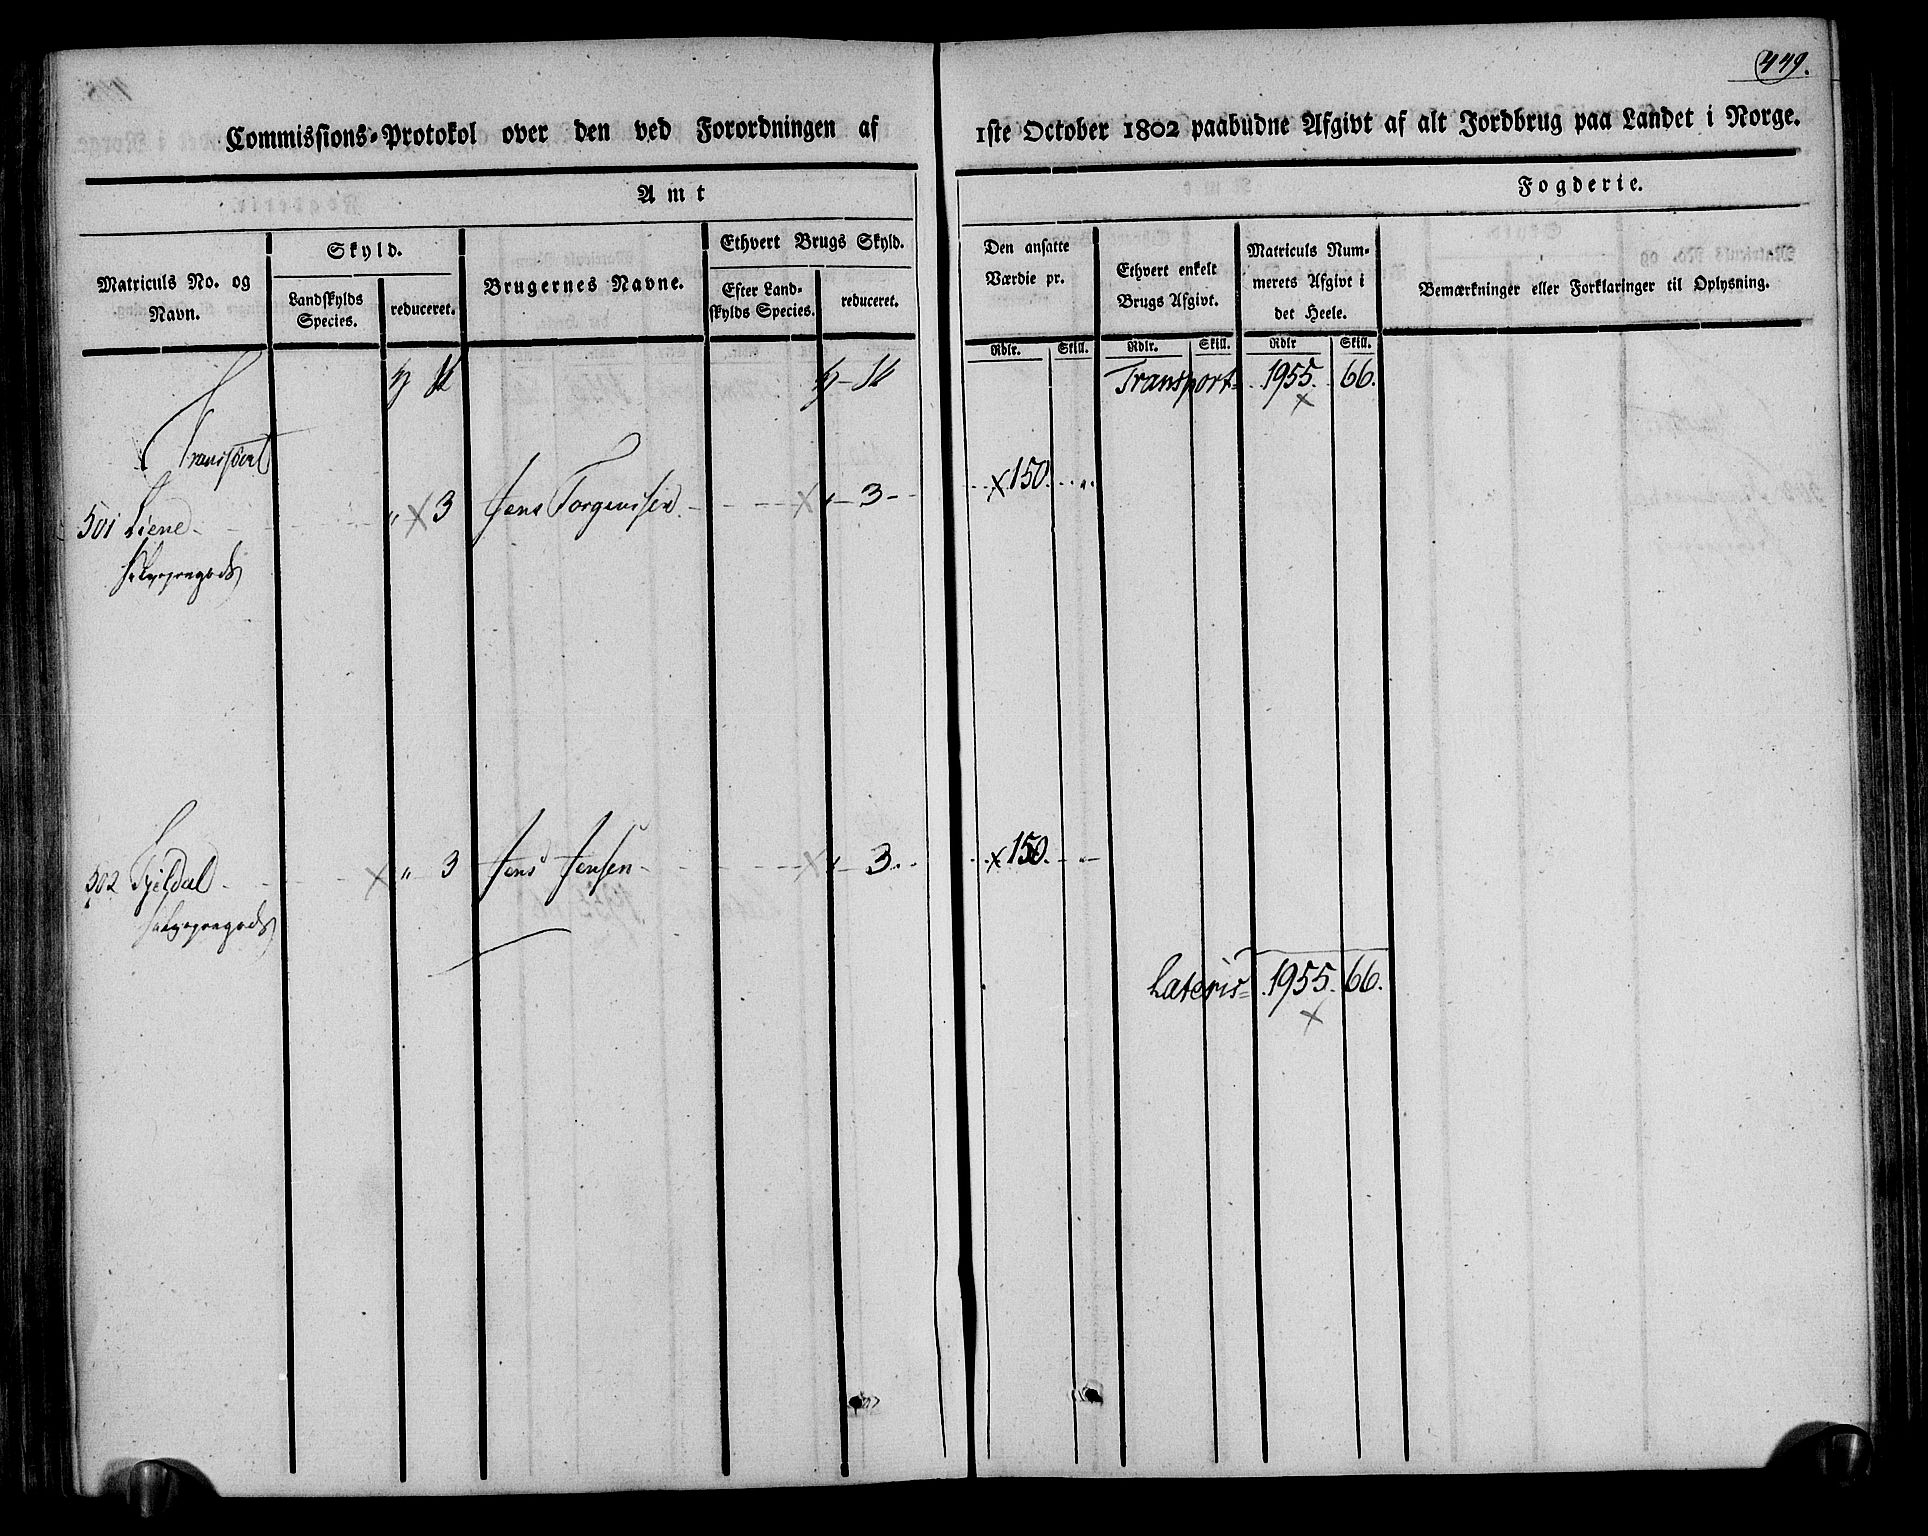 449.
Commissions-Protokol over den ved Forordningen af 1ste October 1802 paabudne Afgivt af alt Jordbrug paa Landet i Norge.
Amt
Fogderie.
Matriculs No. og Navn.
Skyld.
Landskylds Species.
reduceret.
Brugernes Navne.
Ethvert Brugs Skyld.
Efter Landskylds Species.
reduceret.
Den ansatte Værdie pr.
Ethvert enkelt Brugs Afgivt.
Matriculs Nummerets Afgivt i det Heele.
Bemærkninger eller Forklaringer til Oplysning.
Rdlr. Skill. Rdlr. Skill. Rdlr Skill.
Transport 1955. 66.
Transport
501 Liene " 3 Jens Torgersen 3 150. "
Selveyergods
502 Fjeldal " 3 Jens Jensen 3. 150. "
Selveyergods
Lateris 1955. 66.